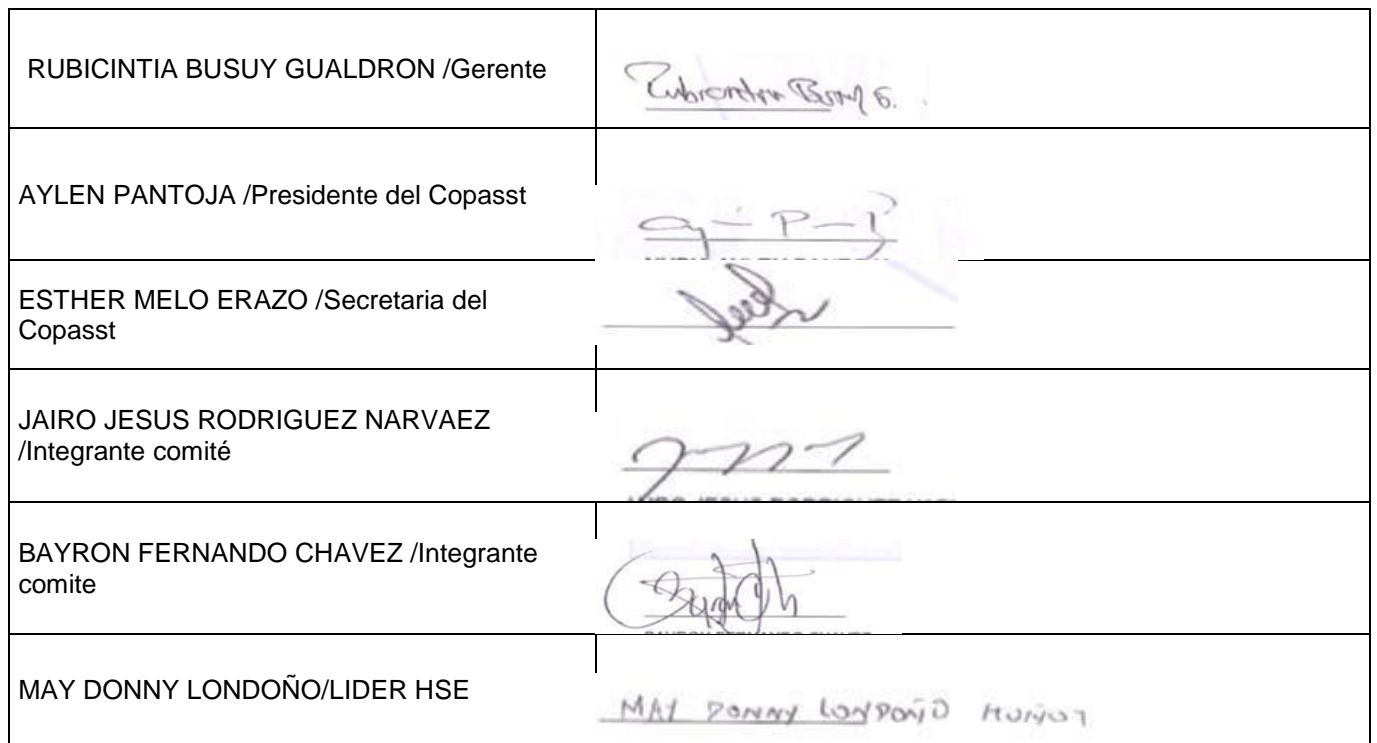 RUBICINTIA BUSUY GUALDRON /Gerente
Rubicintia Busuy G.
AYLEN PANTOJA /Presidente del Copasst
ESTHER MELO ERAZO /Secretaria del
Copasst
JAIRO JESUS RODRIGUEZ NARVAEZ
/Integrante comité
BAYRON FERNANDO CHAVEZ /Integrante
comite
MAY DONNY LONDOÑO/LIDER HSE
MAY DONNY LONDOÑO MUÑOZ